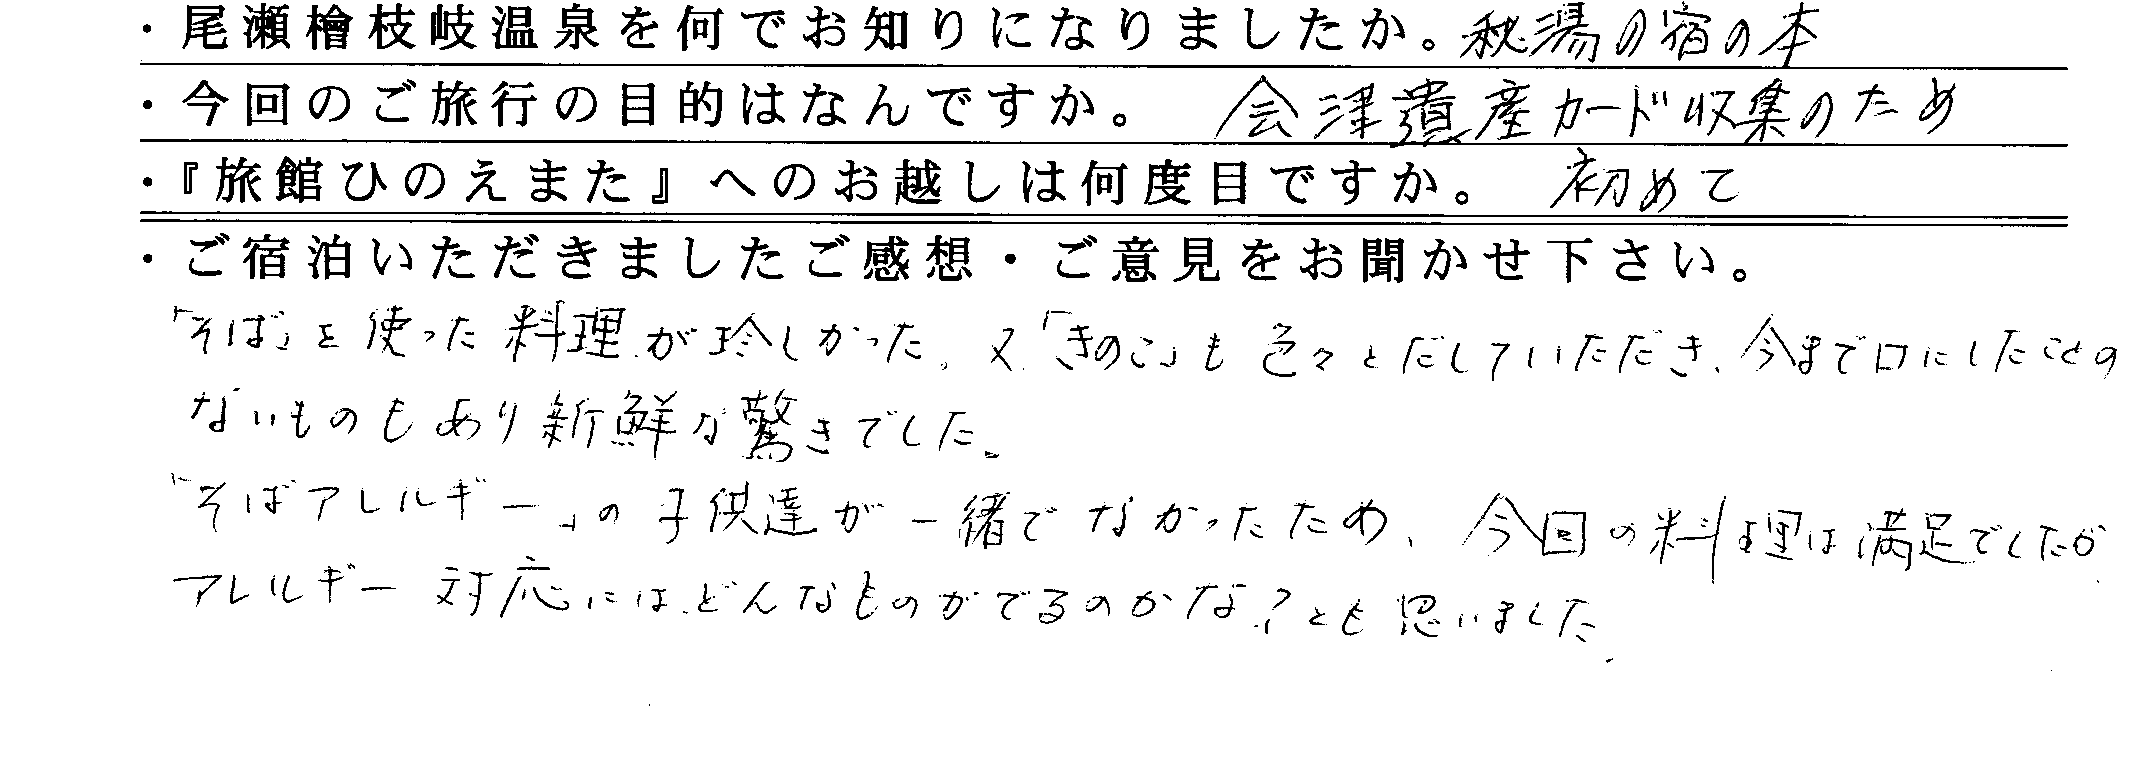 ・尾瀬檜枝岐温泉を何でお知りになりましたか。秘湯の宿の本
・今回のご旅行の目的はなんですか。 会津遺産カード収集のため
・『旅館ひのえまた』へのお越しは何度目ですか。 初めて
・ご宿泊いただきましたご感想・ご意見をお聞かせ下さい。
「そば」を使った料理が珍しかった。又「きのこ」も色々とだしていただき、今まで口にしたことの
ないものもあり新鮮な驚きでした。
「そばアレルギー」の子供達が一緒でなかったため、今回の料理は満足でしたが
アレルギー対応にはどんなものがでるのかな?とも思いました。